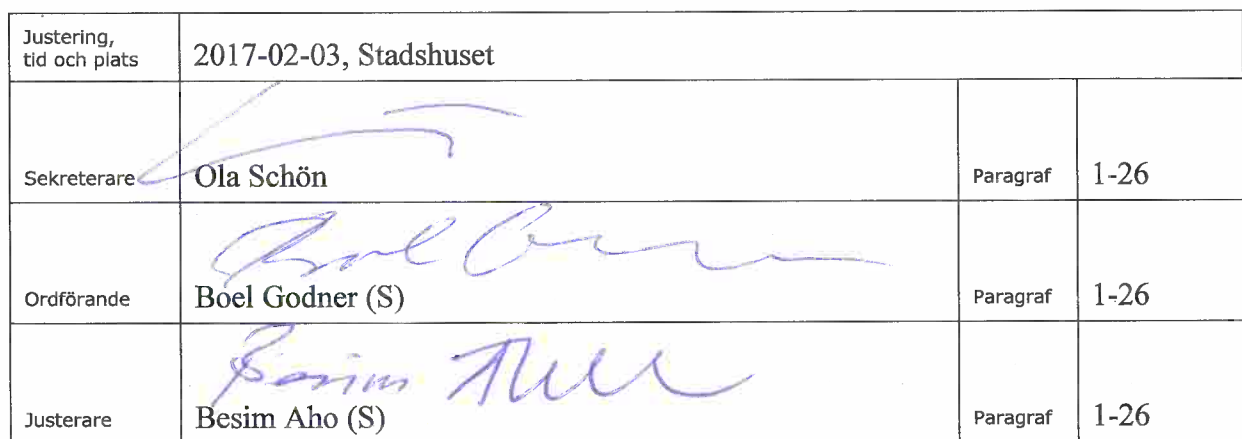 Justering,
tid och plats 2017-02-03, Stadshuset
Sekreterare Ola Schön Paragraf 1-26
Ordförande Boel Godner (S) Paragraf 1-26
Besim
Justerare Besim Aho (S) Paragraf 1-26